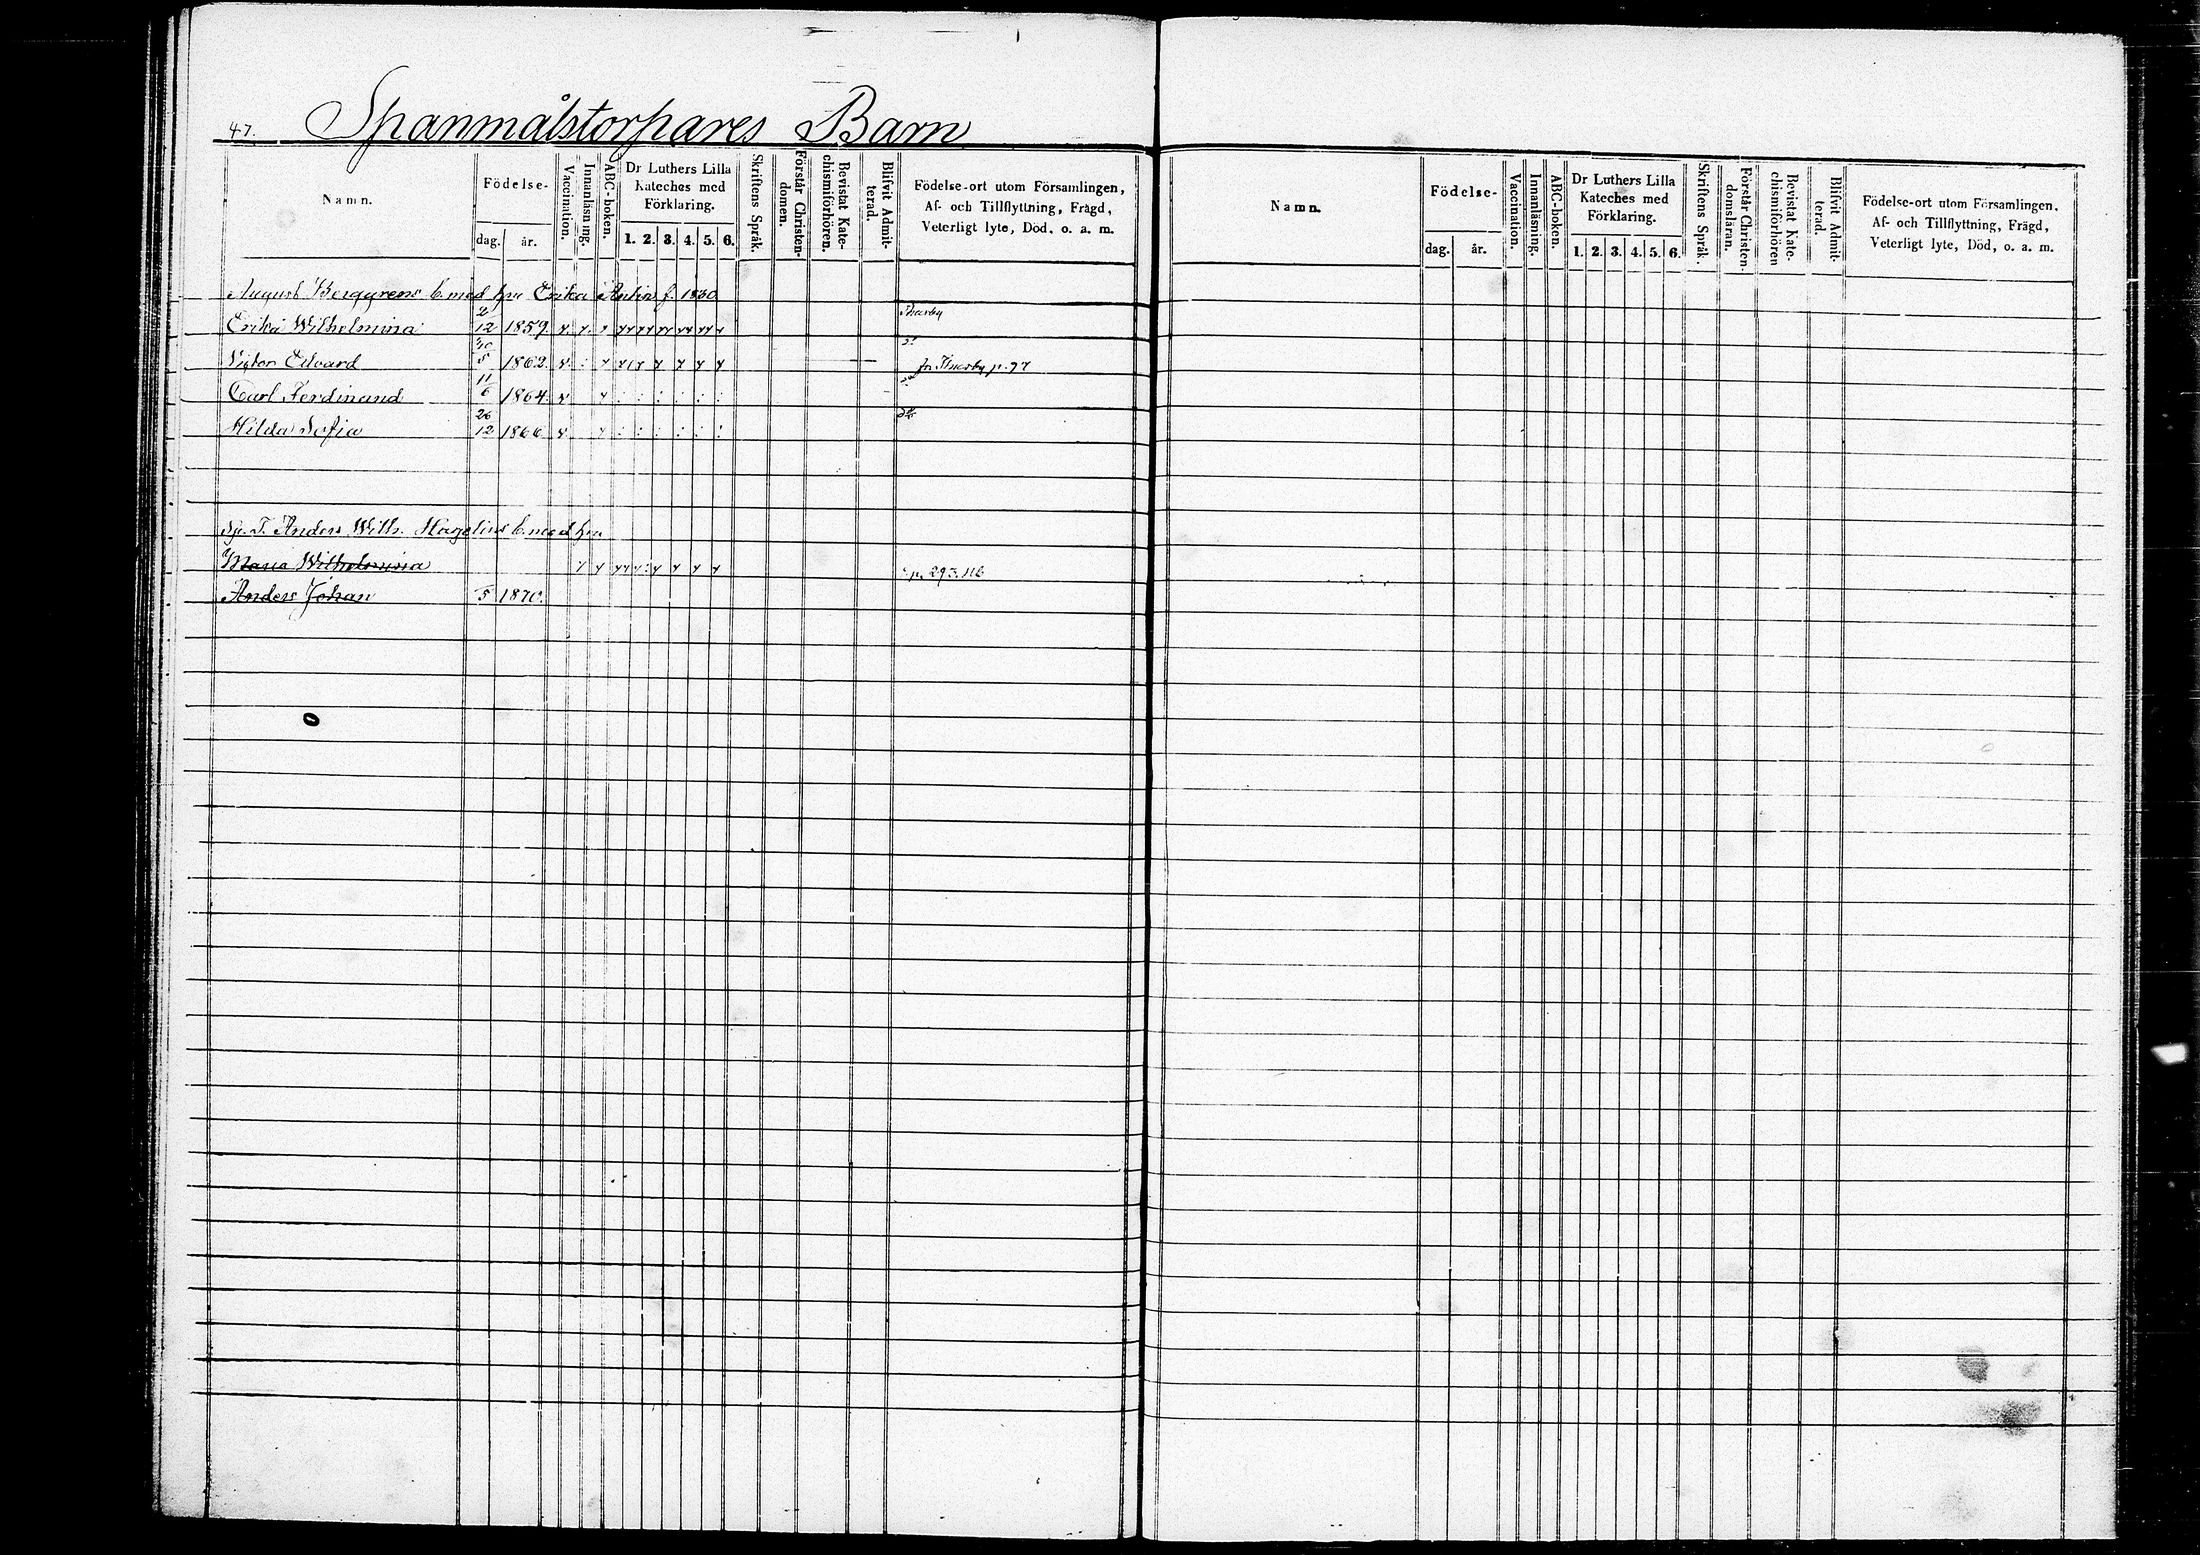 47. Spanmålstorpares Barn
Namn.
Födelse-
dag. år.
Vaccination.
Innanläsning.
ABC-boken.
Dr Luthers Lilla
Kateches med
Förklaring.
1. 2. 3. 4. 5. 6.
Skriftens Språk.
Förstår Christen-
domen.
Bevistat Kate-
chismiförhören.
Blifvit Admit-
terad.
Födelse-ort utom Församlingen,
Af- och Tillflyttning, Frägd,
Veterligt lyte, Död, o. a. m.
August Berggrens b. med hu Erika f. 1830
Erika Wilhelmina 2/12 1859.
Victor Edvard 30/5 1862. p. 97
Carl Ferdinand 11/6 1864.
Hilda Sofia 26/12 1866
Sp. T. Anders Wilh. Hagelins b. med hu
Maria Wilhelmina p. 293.
Anders Johan 5 1870.
Namn.
Födelse-
dag. år.
Vaccination.
Innanläsning.
ABC-boken.
Dr Luthers Lilla
Kateches med
Förklaring.
1. 2. 3. 4. 5. 6.
Skriftens Språk.
Förstår Christen-
domsläran.
Bevistat Kate-
chismiförhören
Blifvit Admit-
terad.
Födelse-ort utom Församlingen,
Af- och Tillflyttning, Frägd,
Veterligt lyte, Död, o. a. m.